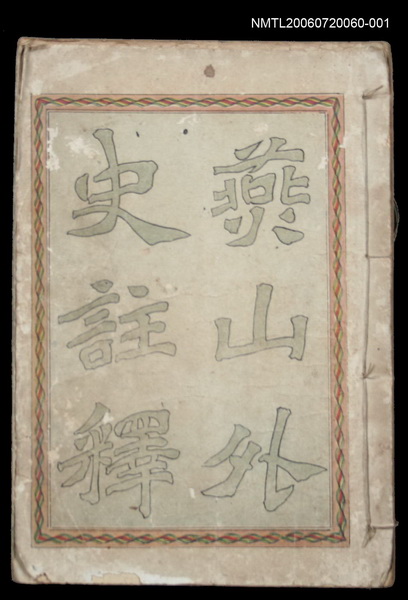 NMTL20060720060-001
燕山外
史註釋